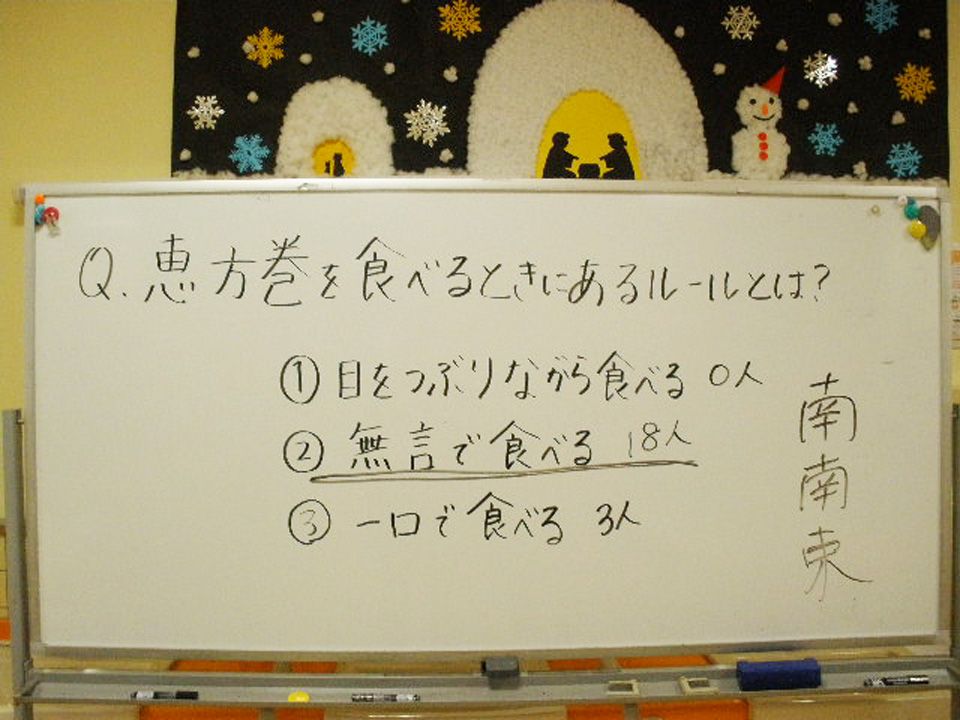 Q. 恵方巻を食べるときにあるルールとは?
① 目をつぶりながら食べる 0人
② 無言で食べる 18人
③ 一口で食べる 3人
南南東